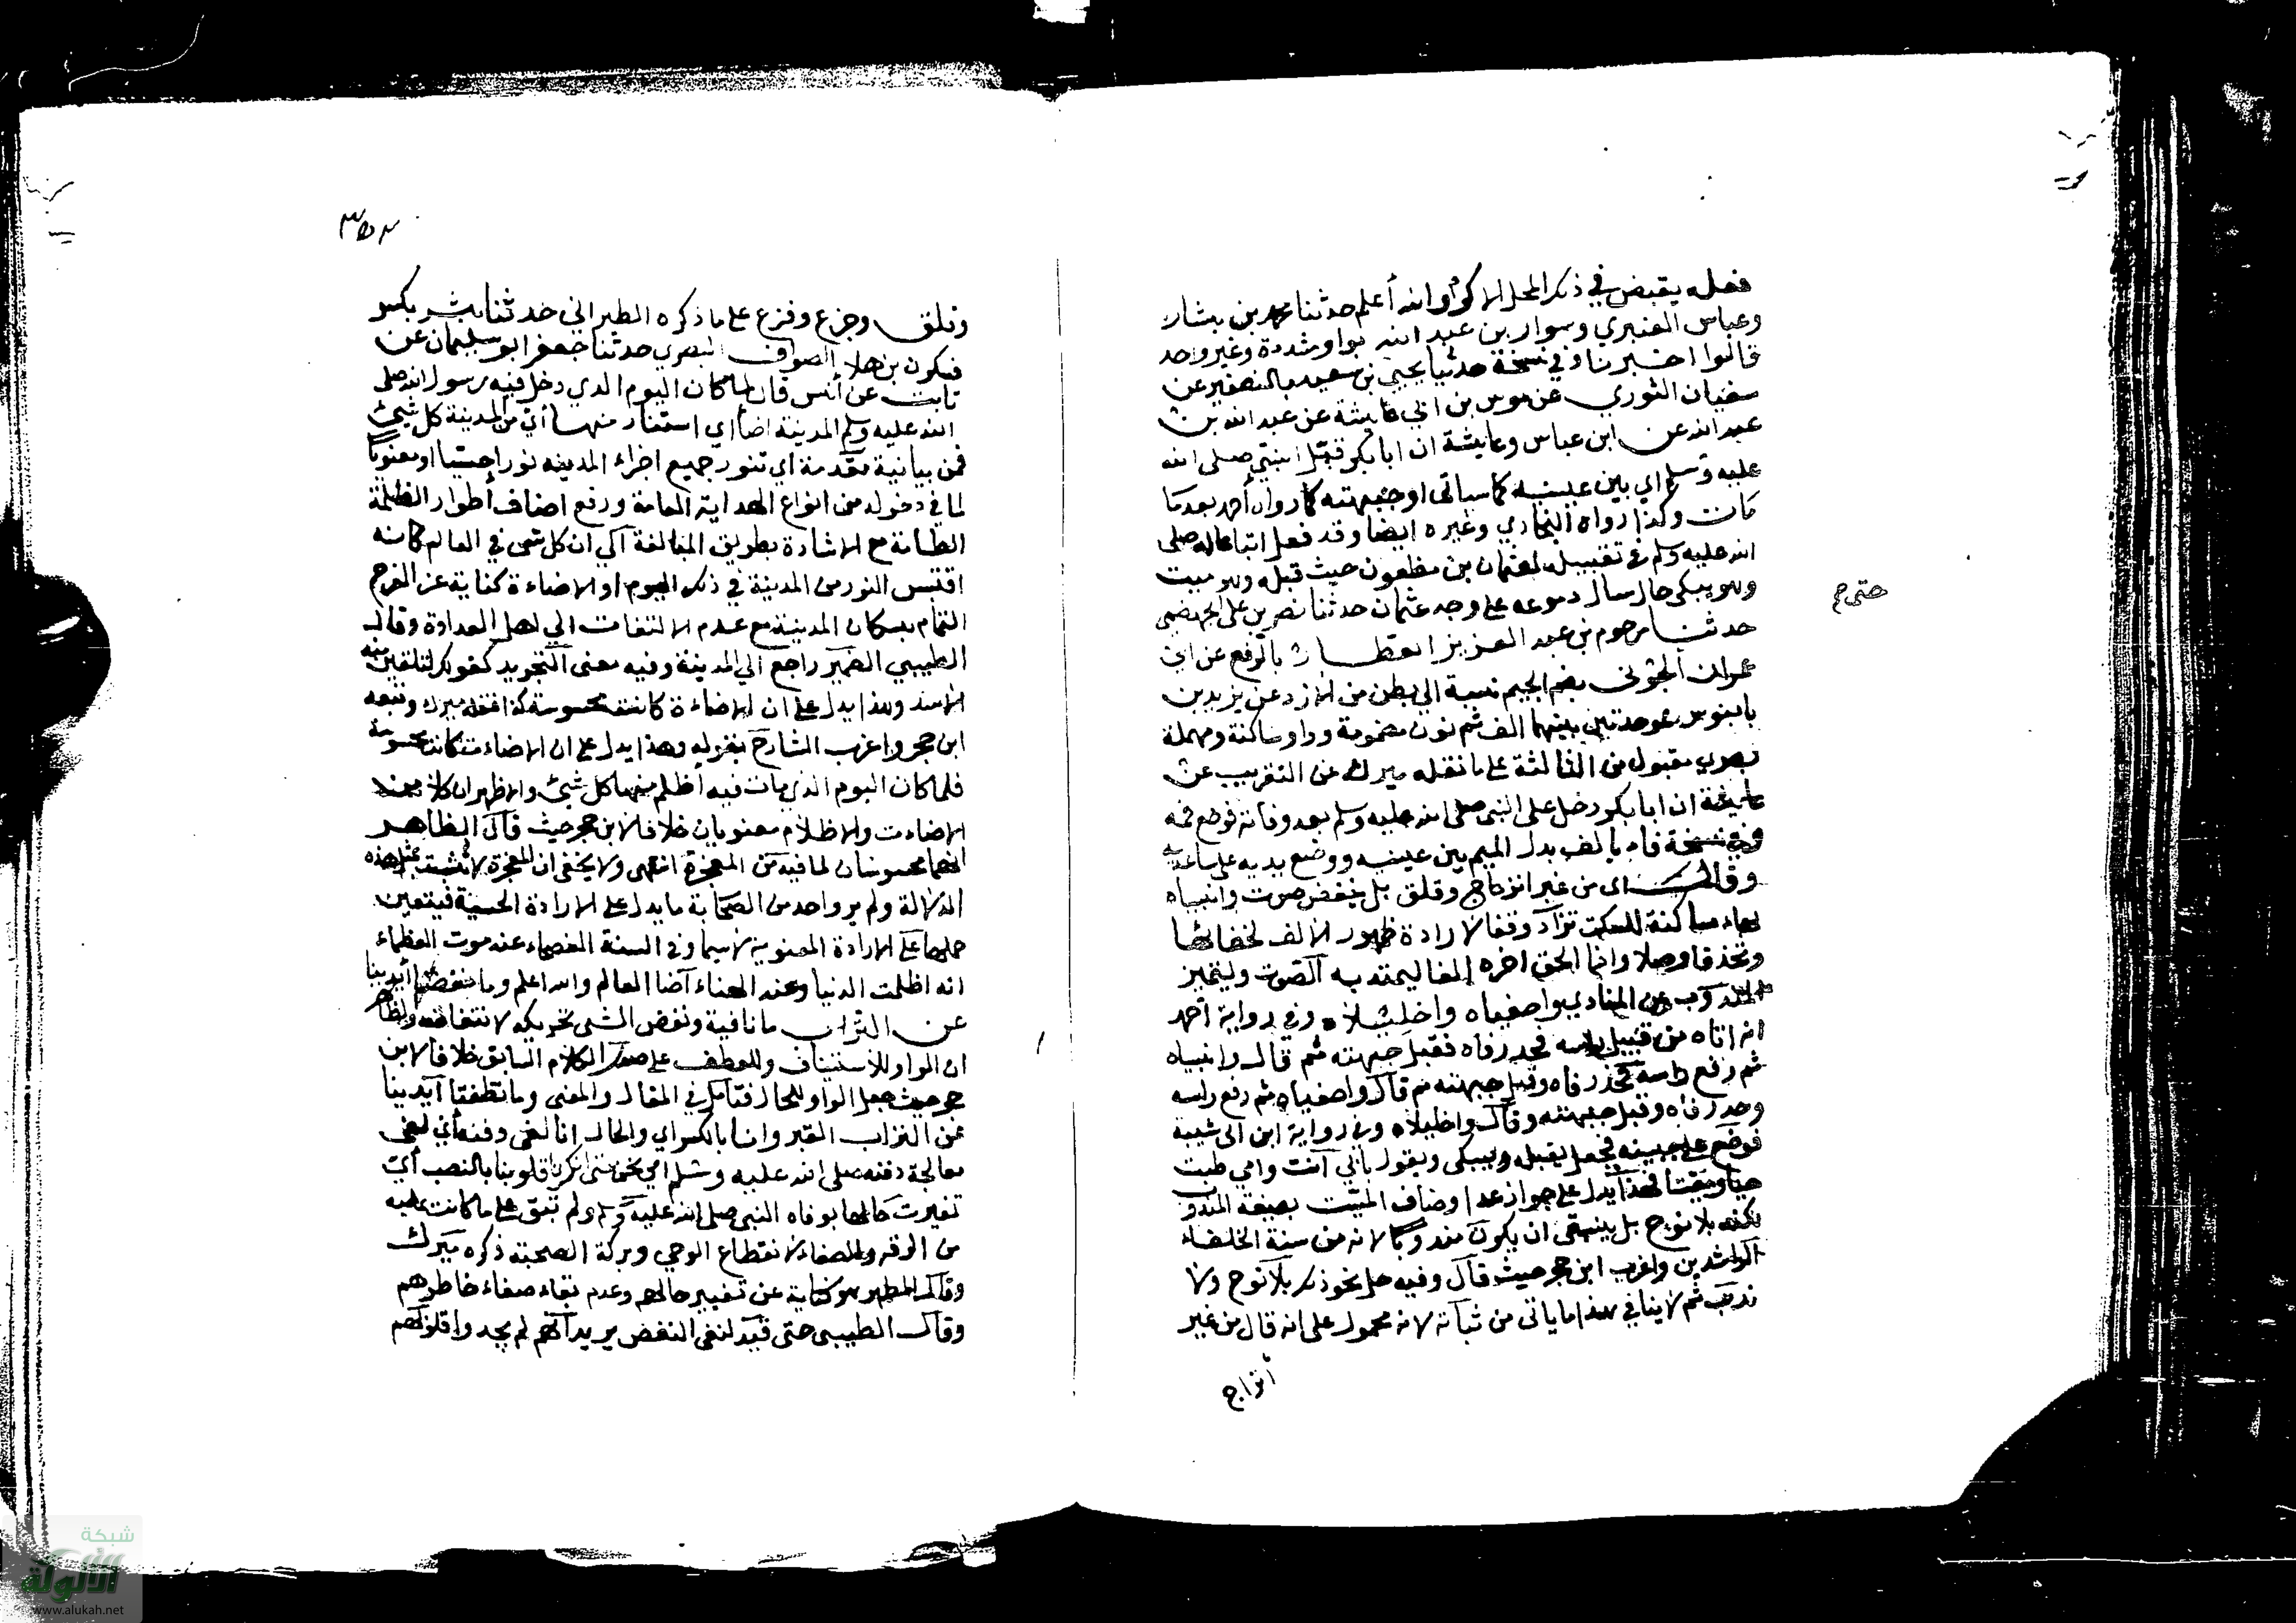 فعله يقبض في ذلك المحل الا كذا والله أعلم حدثنا محمد بن بشار
وعباس العنبري وسوار بن عبد الله بواو مشددة وغير واحد
قالوا اخبرنا وفي نسخة حدثنا يحيى بن سعيد بالتصغير عن
سفيان الثوري عن موسى بن ابي عايشة عن عبيد الله بن
عبد الله عن ابن عباس وعايشة ان ابا بكر قبّل النبي صلى الله
عليه وسلم اي بين عينيه كما سياتي او جبهته كما رواه أحمد بعد ما
مات وكذا رواه البخاري وغيره ايضا وقد فعل اتباعا له صلى
الله عليه وسلم في تقبيله لعثمان بن مظعون حيث قبله وهو ميت
وهو يبكي حال سال دموعه على وجه عثمان حدثنا نصر بن علي الجهضمي
حتى صح
حدثنا مرحوم بن عبد العزيز العطار بالرفع عن ابي
عمران الجوني بضم الجيم نسبة الى بطن من الازد عن يزيد بن
بابنوس بموحدتين بينهما الف ثم نون مضمومة وواو ساكنة ومهملة
بصري مقبول من الثالثة على ما نقله ميرك عن التقريب عن
عايشة ان ابا بكر دخل على النبي صلى الله عليه وسلم بعد وفاته فوضع فمه
وفي نسخة فاه بالف بدل الميم بين عينيه ووضع يديه على ساعديه
وقال اى من غير انزعاج وقلق بل بخفض صوت وانبياه
بهاء ساكنة للسكت تزاد وقفا لارادة ظهور الالف لخفائها
وتحذف وصلا وانما الحق اخره الفا ليمتد به الصوت وليتميز
المندوب عن المنادي واصفياه واخليلاه وفي رواية أحمد
انه اتاه من قبل راسه فحدر فاه فقبل جبهته ثم قال وانبياه
ثم رفع راسه فحدر فاه وقبل جبهته ثم قال واصفياه ثم رفع راسه
وحدر فاه وقبل جبهته وقال واخليلاه وفي رواية ابن ابي شيبة
فوضع على جبينه فجعل يقبله ويبكي ويقول بابي أنت وامي طبت
حيا وميتا فهذا يدل على جواز عد اوصاف الميت بصيغة المندوب
لكنه بلا نوح بل ينبغي ان يكون مندوبا لانه من سنة الخلفاء
الراشدين واغرب ابن حجر حيث قال وفيه حل نحو ذلك بلا نوح ولا
ندب ثم لا ينافي هذا ما ياتي من ثباته لانه محمول على انه قال من غير
انزعاج
وقلق وجزع وفزع على ما ذكره الطبراني حدثنا بشر بكسر
فسكون بن هلال الصواف البصري حدثنا جعفر ابو سليمان عن
ثابت عن أنس قال لما كان اليوم الذي دخل فيه رسول الله صلى
الله عليه وسلم المدينة اضاء اي استنار منها أي من المدينة كل شيئ
فمن بيانية مقدمة أي تنور جميع اجزاء المدينة نورا حسيا او معنويا
لما في دخوله من انواع الهداية العامة ورفع اصناف أطوار الظلمة
الطامة مع الاشارة بطريق المبالغة الى ان كل شئ في العالم كانه
اقتبس النور من المدينة في ذلك اليوم او الاضاءة كناية عن الفرح
التام بسكان المدينة مع عدم الالتفات الي اهل العداوة وقال
الطيبي الضمير راجع الي المدينة وفيه معنى التجريد كقولك لتلقين منه
الاسد وهذا يدل على ان الاضاءة كانت محسوسة كذا نقله ميرك وتبعه
ابن حجر واغرب الشارح بقوله وهذا يدل على ان الاضاءة كانت محسوسة
فلما كان اليوم الذي مات فيه أظلم منها كل شيئ والاظهر ان كلا من
الاضاءت والاظلام معنويان خلافا لابن حجر حيث قال الظاهر
انهما محسوسان لما فيه من المعجزة انتهى ولا يخفى ان المعجزة لا تثبت بمثل هذه
الدلالة ولم يرو احد من الصحابة ما يدل على الارادة الحسية فيتعين
حملها على الارادة المعنوية لا سيما وفي السنة الفصحاء عند موت العظماء
انه اظلمت الدنيا وعند الهناء أضا العالم والله اعلم وما نفضنا أيدينا
عن التراب ما نافية ونفض الشئ تحريكه لانتفاضه والظاهر
ان الواو للاستيناف وللعطف على صدر الكلام السابق خلافا لابن
حجر حيث جعل الواو للحال فتامل في المقال والمعنى وما نظفنا أيدينا
عن التراب القبر وانا بالكسر اي والحال انا لفي دفنه أي لفي
معالجة دفنه صلى الله عليه وسلم اي حتى انكرنا قلوبنا بالنصب أي
تغيرت حالها بوفاه النبي صلى الله عليه وسلم ولم تبق على ما كانت عليه
من الرقة والصفاء لانقطاع الوحي وبركة الصحبة ذكره ميرك
وقال المظهر هو كناية عن تغيير حالهم وعدم بقاء صفاء خاطرهم
وقال الطيبي حتى قيد لنفي النفض يريد انهم لم يجدوا قلوبهم